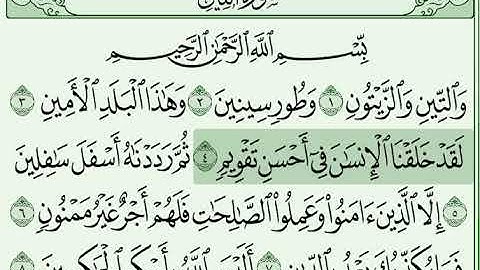 سورة التين
بِسْمِ ٱللَّهِ ٱلرَّحْمَٰنِ ٱلرَّحِيمِ
وَٱلتِّينِ وَٱلزَّيْتُونِ ١ وَطُورِ سِينِينَ ٢ وَهَٰذَا ٱلْبَلَدِ ٱلْأَمِينِ ٣
لَقَدْ خَلَقْنَا ٱلْإِنسَٰنَ فِىٓ أَحْسَنِ تَقْوِيمٍ ٤ ثُمَّ رَدَدْنَٰهُ أَسْفَلَ سَٰفِلِينَ
٥ إِلَّا ٱلَّذِينَ ءَامَنُوا۟ وَعَمِلُوا۟ ٱلصَّٰلِحَٰتِ فَلَهُمْ أَجْرٌ غَيْرُ مَمْنُونٍ ٦
فَمَا يُكَذِّبُكَ بَعْدُ بِٱلدِّينِ ٧ أَلَيْسَ ٱللَّهُ بِأَحْكَمِ ٱلْحَٰكِمِينَ ٨